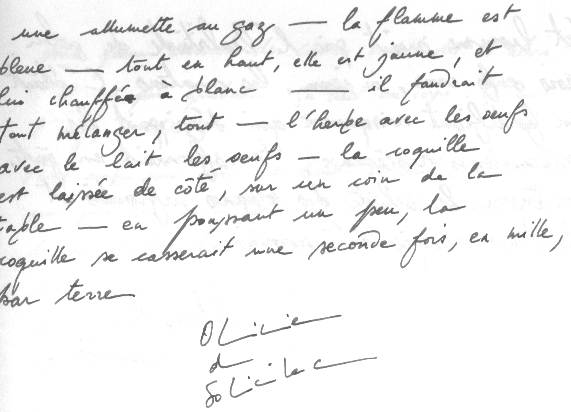 une allumette au gaz — la flamme est
bleue — tout en haut, elle est jaune, et
lui chauffée à blanc — il faudrait
tout mélanger, tout — l'herbe avec les oeufs
avec le lait les oeufs — la coquille
est laissée de côté, sur un coin de la
table — en poussant un peu, la
coquille se casserait une seconde fois, en mille,
par terre